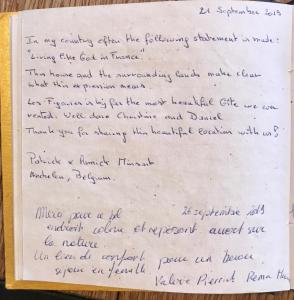 21 September 2013
In my country often the following statement is made:
"Living like God in France".
This house and the surrounding lands make clear
what this expression means.
Les Figuiers is by far the most beautiful Gîte we ever
rented. Well done Christiane and Daniel
Thank you for sharing this beautiful location with us!
Patrick & Annick
Mechelen, Belgium.
26 septembre 2013
Merci pour ce bel
endroit calme et reposant ouvert sur
la nature.
Un lieu de confort pour un beau
séjour en famille
Valérie Pierrick Roma